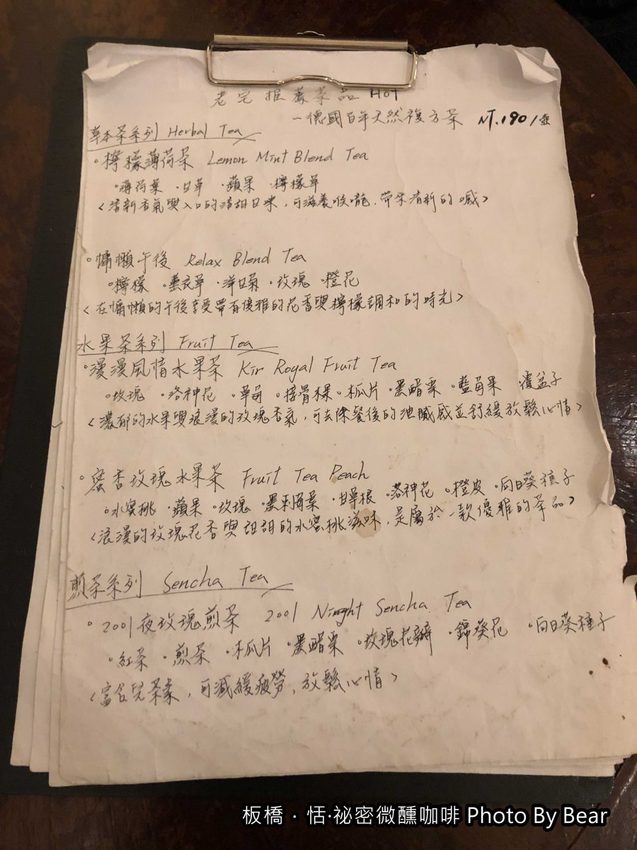 老宅推薦茶品 HOT
一德國百年天然複方茶 NT.190/壺
草本茶系列 Herbal Tea
。檸檬薄荷茶 Lemon Mint Blend Tea
·薄荷葉 ·甘草 ·蘋果 ·檸檬草
<清新香氣與入口的清甜甘味,可滋養喉嚨,帶來清新的喊>
。慵懶午後 Relax Blend Tea
。檸檬 ·燕衣草 ·洋甘菊 ·玫瑰 橙花
<在慵懶的午後享受帶有優雅的花香與檸檬調和的時光>
水果茶系列 Fruit Tea
。漫漫風情水果茶 Kir Rogal Fruit Tea
。玫瑰 ·洛神花 ·草莓 ·接骨木果 ·木瓜片 ·黑醋栗 ·藍莓果 覆盆子
<濃郁的水果與浪漫的玫瑰香氣,可去除餐後的油膩感並舒緩放鬆心情>
。蜜香玫瑰水果茶 Fruit Tea Peach
。水蜜桃 ·蘋果 ·玫瑰 ·黑莓葉 ·甘草根 ·洛神花 ·橙皮 ·向日葵種子
<浪漫的玫瑰花香與甜甜的水蜜桃滋味,是屬於一款優雅的茶品>
煎茶系列 Sencha Tea
。2001夜玫瑰煎茶 2001 Ninght Sencha Tea
·紅茶 ·煎茶 ·木瓜片 ·黑醋栗 ·玫瑰花瓣 ·錦葵花 ·向日葵種子
<富含兒茶素,可減緩疲勞,放鬆心情>
板橋‧恬·祕密微醺咖啡 Photo By Bear